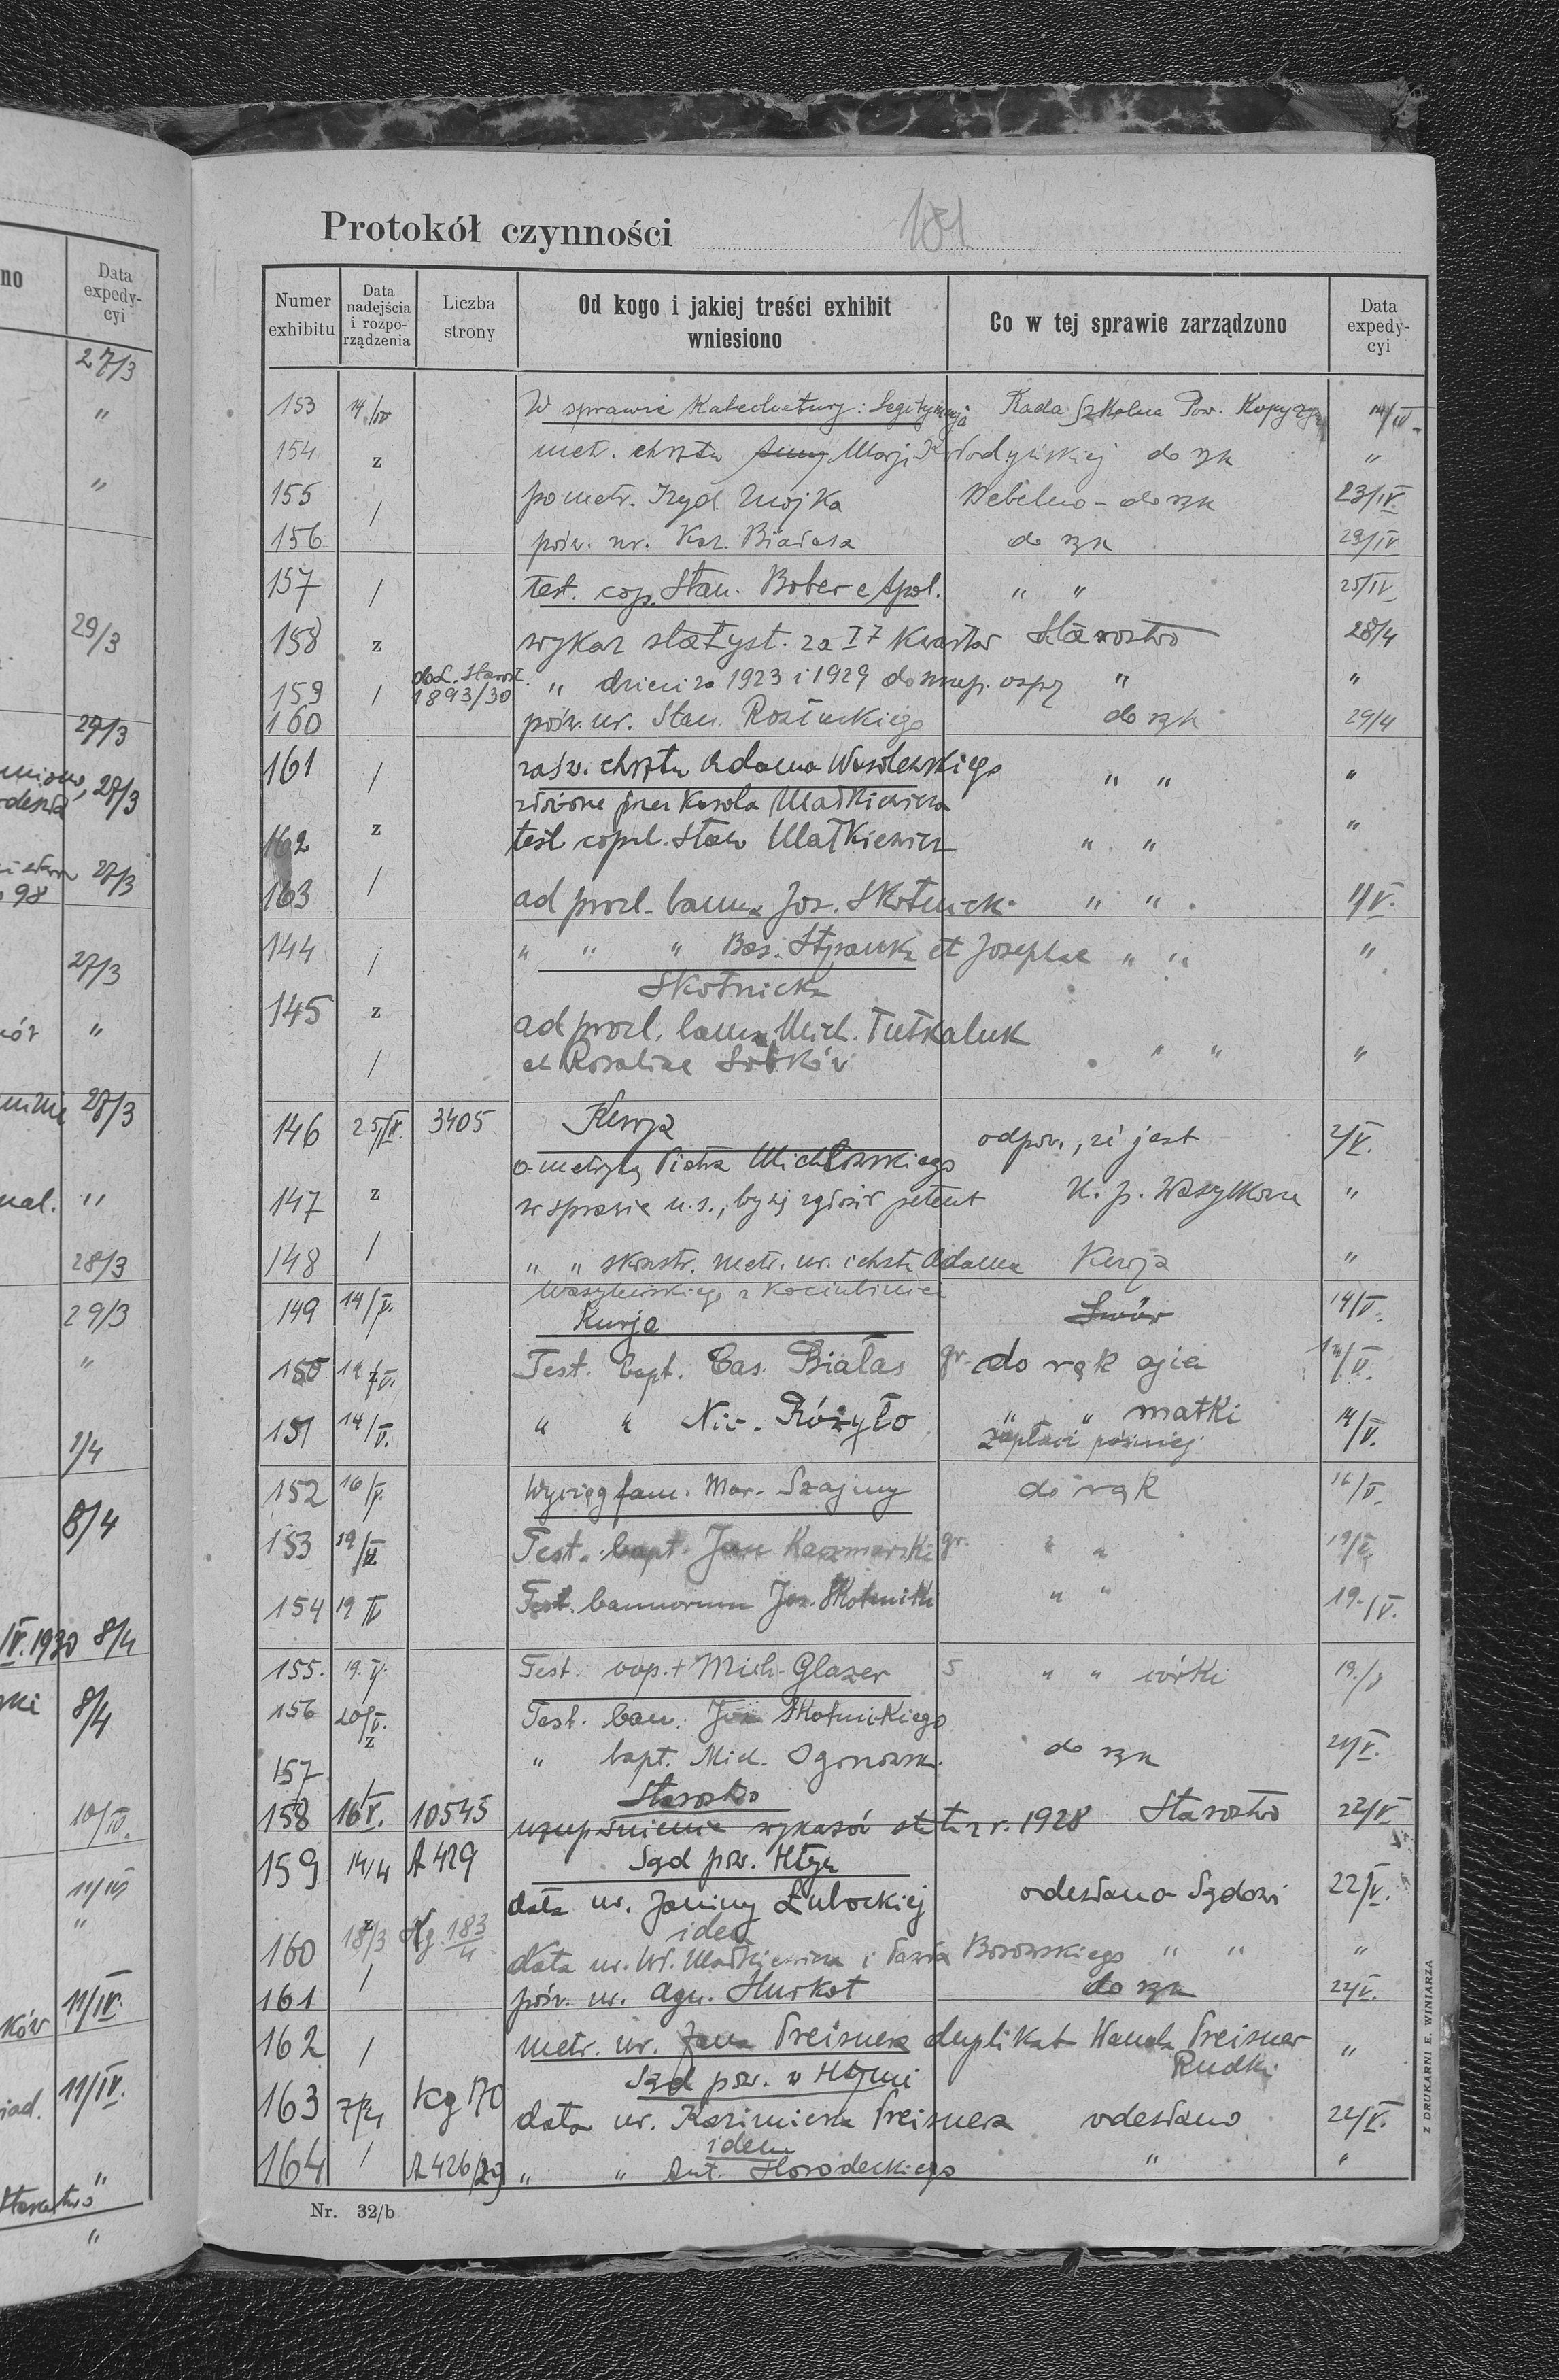 Protokół czynności 181
Numer exhibitu
Data nadejścia i rozporządzenia
Liczba strony
Od kogo i jakiej treści exhibit wniesiono
Co w tej sprawie zarządzono
Data expedycyi
153 14/IV W sprawie Katechetury: Rada Szkolna Pow. 14/IV.
154 z metr. chrztu Marji do rąk "
155 / po metr. Izyd. Wojka - do rąk 23/IV.
156 pośw. ur. Kaz. Białasa do rąk 23/IV
157 / test. cop. Stan. Bober e Apol. " " 25/IV
158 z wykaz statyst. za I kwartał Starostwo 28/4
159 / do L. Starost. 1893/30 " dzieci za 1923 i 1929 do ospy " "
160 pośw. ur. Stan. Rozłuckiego do rąk 29/4
161 / zaśw. chrztu Adama Wasylewskiego " " "
złożone przez Karola Małkiewicza
162 z test. copul. Stan Małkiewicz " " "
163 / ad procl. banna Joz. Skotnicki " " 1/V.
144 / " " " Bas. et Josephae " " "
Skotnicka
145 z ad procl. banna Mich. Tutkaluk
/ et Rosaliae " " "
146 25/IV. 3405 Kurja odpow., że jest 2/V.
o metrykę Piotra Michłowskiego
147 z w sprawie u.s., by się zgłosił petent U. p. Wasylkowce "
148 / " " metr. ur. i chrztu Adama Kurja "
Wasylewskiego z Kociubiniec
149 14/V. Kurja Lwów 14/V.
150 14/V. Test. bapt. Cas. Białas gr. do rąk ojca 14/V.
151 14/V. " " Nic. Różyło " " matki 14/V.
zapłaci później
152 16/V. Wyciąg fam. Mar. Szajny do rąk 16/V.
153 19/V Test. bapt. Jan Kaczmarski gr. " " 19/V
154 19 V Test. bannorum Joz. Skotnicki " " 19./V.
155. 19. V. Test. cop. + Mich. Glazer 5 " " córki 19./V
156 20/V. Test. ban. Skotnickiego
z
157 " bapt. Mich. Ogonowsk. do rąk 21/V.
158 16/V. 10545 Starostwo
uzupełnienie wykazów z r. 1928 Starostwo 22/V
159 14/4 A 429 Sąd pow.
data ur. Janiny Łubockiej odesłano Sądowi 22/V.
160 z 18/3 Kg 183/4 idem
data ur. Wł. Małkiewicza i Borowskiego " " "
161 / pośw. ur. Agn. Hurkot do rąk 22/V.
162 / metr. ur. Jana Preisnera duplikat Wanda Preisner "
Rudki
163 7/4 Kg 170 Sąd pow. w
data ur. Kazimierza Preisnera odesłano 22/V.
164 / A 426/29 idem
" " Ant. Horodeckiego " "
Nr. 32/b
Z DRUKARNI E. WINIARZA
no
Data expedycyi
27/3
"
"
29/3
27/3
27/3
98 27/3
27/3
"
27/3
"
28/3
29/3
"
1/4
8/4
/IV. 1930 8/4
8/4
10/IV.
11/IV
"
11/IV.
11/IV.
"
Starostwo
"